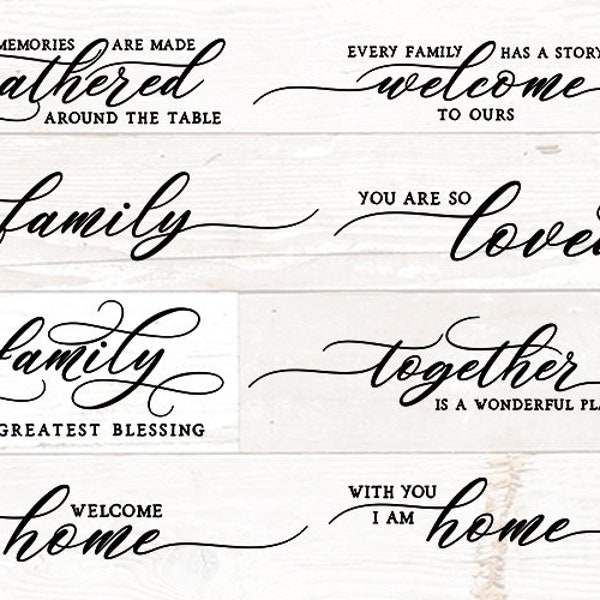 MEMORIES ARE MADE
gathered
AROUND THE TABLE
EVERY FAMILY HAS A STORY
welcome
TO OURS
family
YOU ARE SO
loved
family
GREATEST BLESSING
together
IS A WONDERFUL PLA
WELCOME
home
WITH YOU
I AM
home